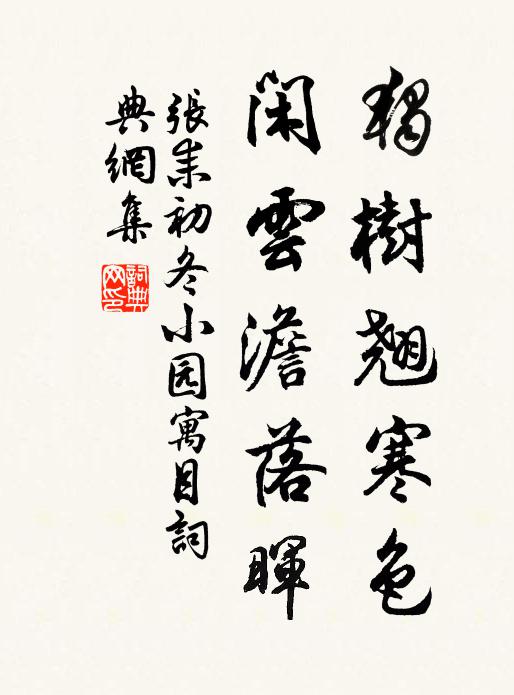 獨樹翹寒色
閑雲澹落暉
張耒初冬小园寓目詞
典網集
詞典网印